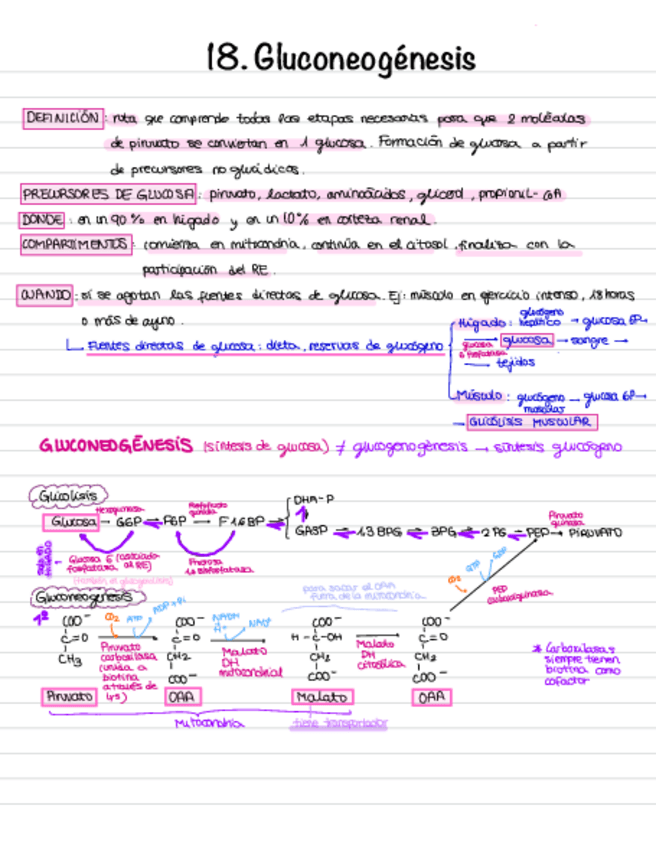 18. Gluconeogénesis
DEFINICIÓN: ruta que comprende todas las etapas necesarias para que 2 moléculas
de piruvato se conviertan en 1 glucosa. Formación de glucosa a partir
de precursores no glucídicos.
PRECURSORES DE GLUCOSA: piruvato, lactato, aminoácidos, glicerol, propionil-CoA
DONDE: en un 90% en hígado y en un 10% en corteza renal.
COMPARTIMENTOS: comienza en mitocondria, continúa en el citosol, finaliza con la
participación del RE.
CUANDO: si se agotan las fuentes directas de glucosa. Ej: músculo en ejercicio intenso, 18 horas
o más de ayuno.
Fuentes directas de glucosa: dieta, reservas de glucógeno
Hígado: glucógeno hepático → glucosa 6P →
glucosa 6 fosfatasa glucosa → sangre →
tejidos
Músculo: glucógeno muscular → glucosa 6P →
→ GLICÓLISIS MUSCULAR
GLUCONEOGÉNESIS (síntesis de glucosa) ≠ glucogenogénesis → síntesis glucógeno
Glicólisis
Hexoquinasa
Piruvato quinasa
DHA-P
Glucosa → G6P F6P → F1,6BP
GA3P 1,3 BPG 3PG 2PG PEP → PIRUVATO
Glucosa 6 fosfatasa (asociado al RE)
Fructosa 1,6 bisfosfatasa
Gluconeogénesis
para sacar el OAA
fuera de la mitocondria
CO2 ATP GDP
PEP carboxiquinasa
1º
CO2 ATP ADP+Pi
NADH H+ NAD+
COO⁻ COO⁻ COO⁻ COO⁻
C=O C=O H-C-OH C=O
CH3 CH2 CH2 CH2
COO⁻ COO⁻ COO⁻
Piruvato carboxilasa (unida a biotina a través de Lys)
Malato DH mitocondrial
Malato DH citosólica
* Carboxilasas siempre tienen biotina como cofactor
Piruvato OAA Malato OAA
Mitocondria tiene transportador